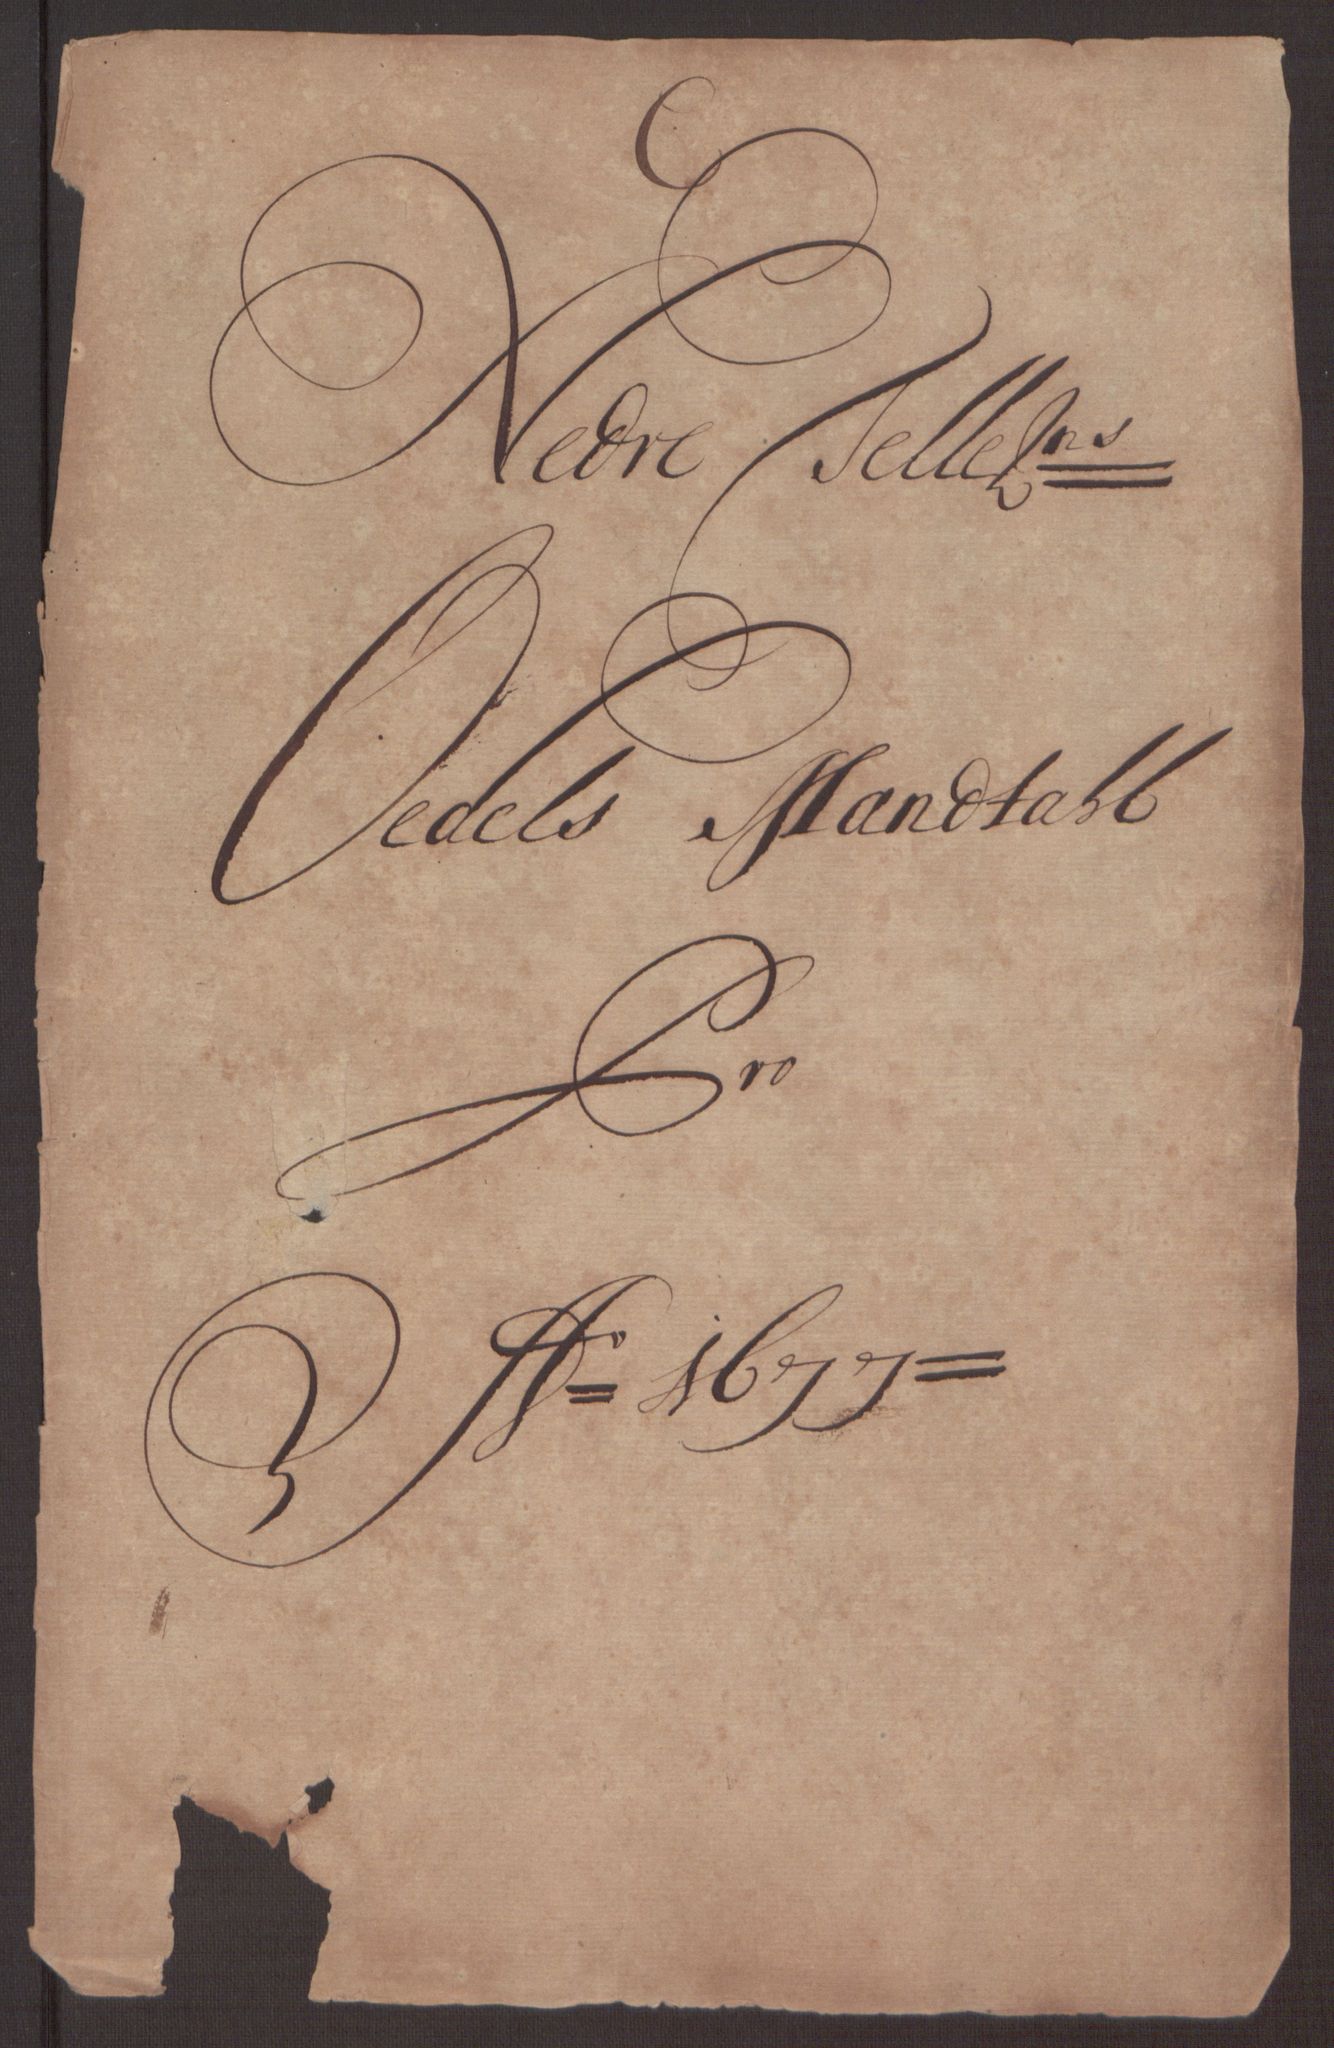 C
Nedre Tellem:ns
Oedels Mandtahl
Pro
Ao 1677